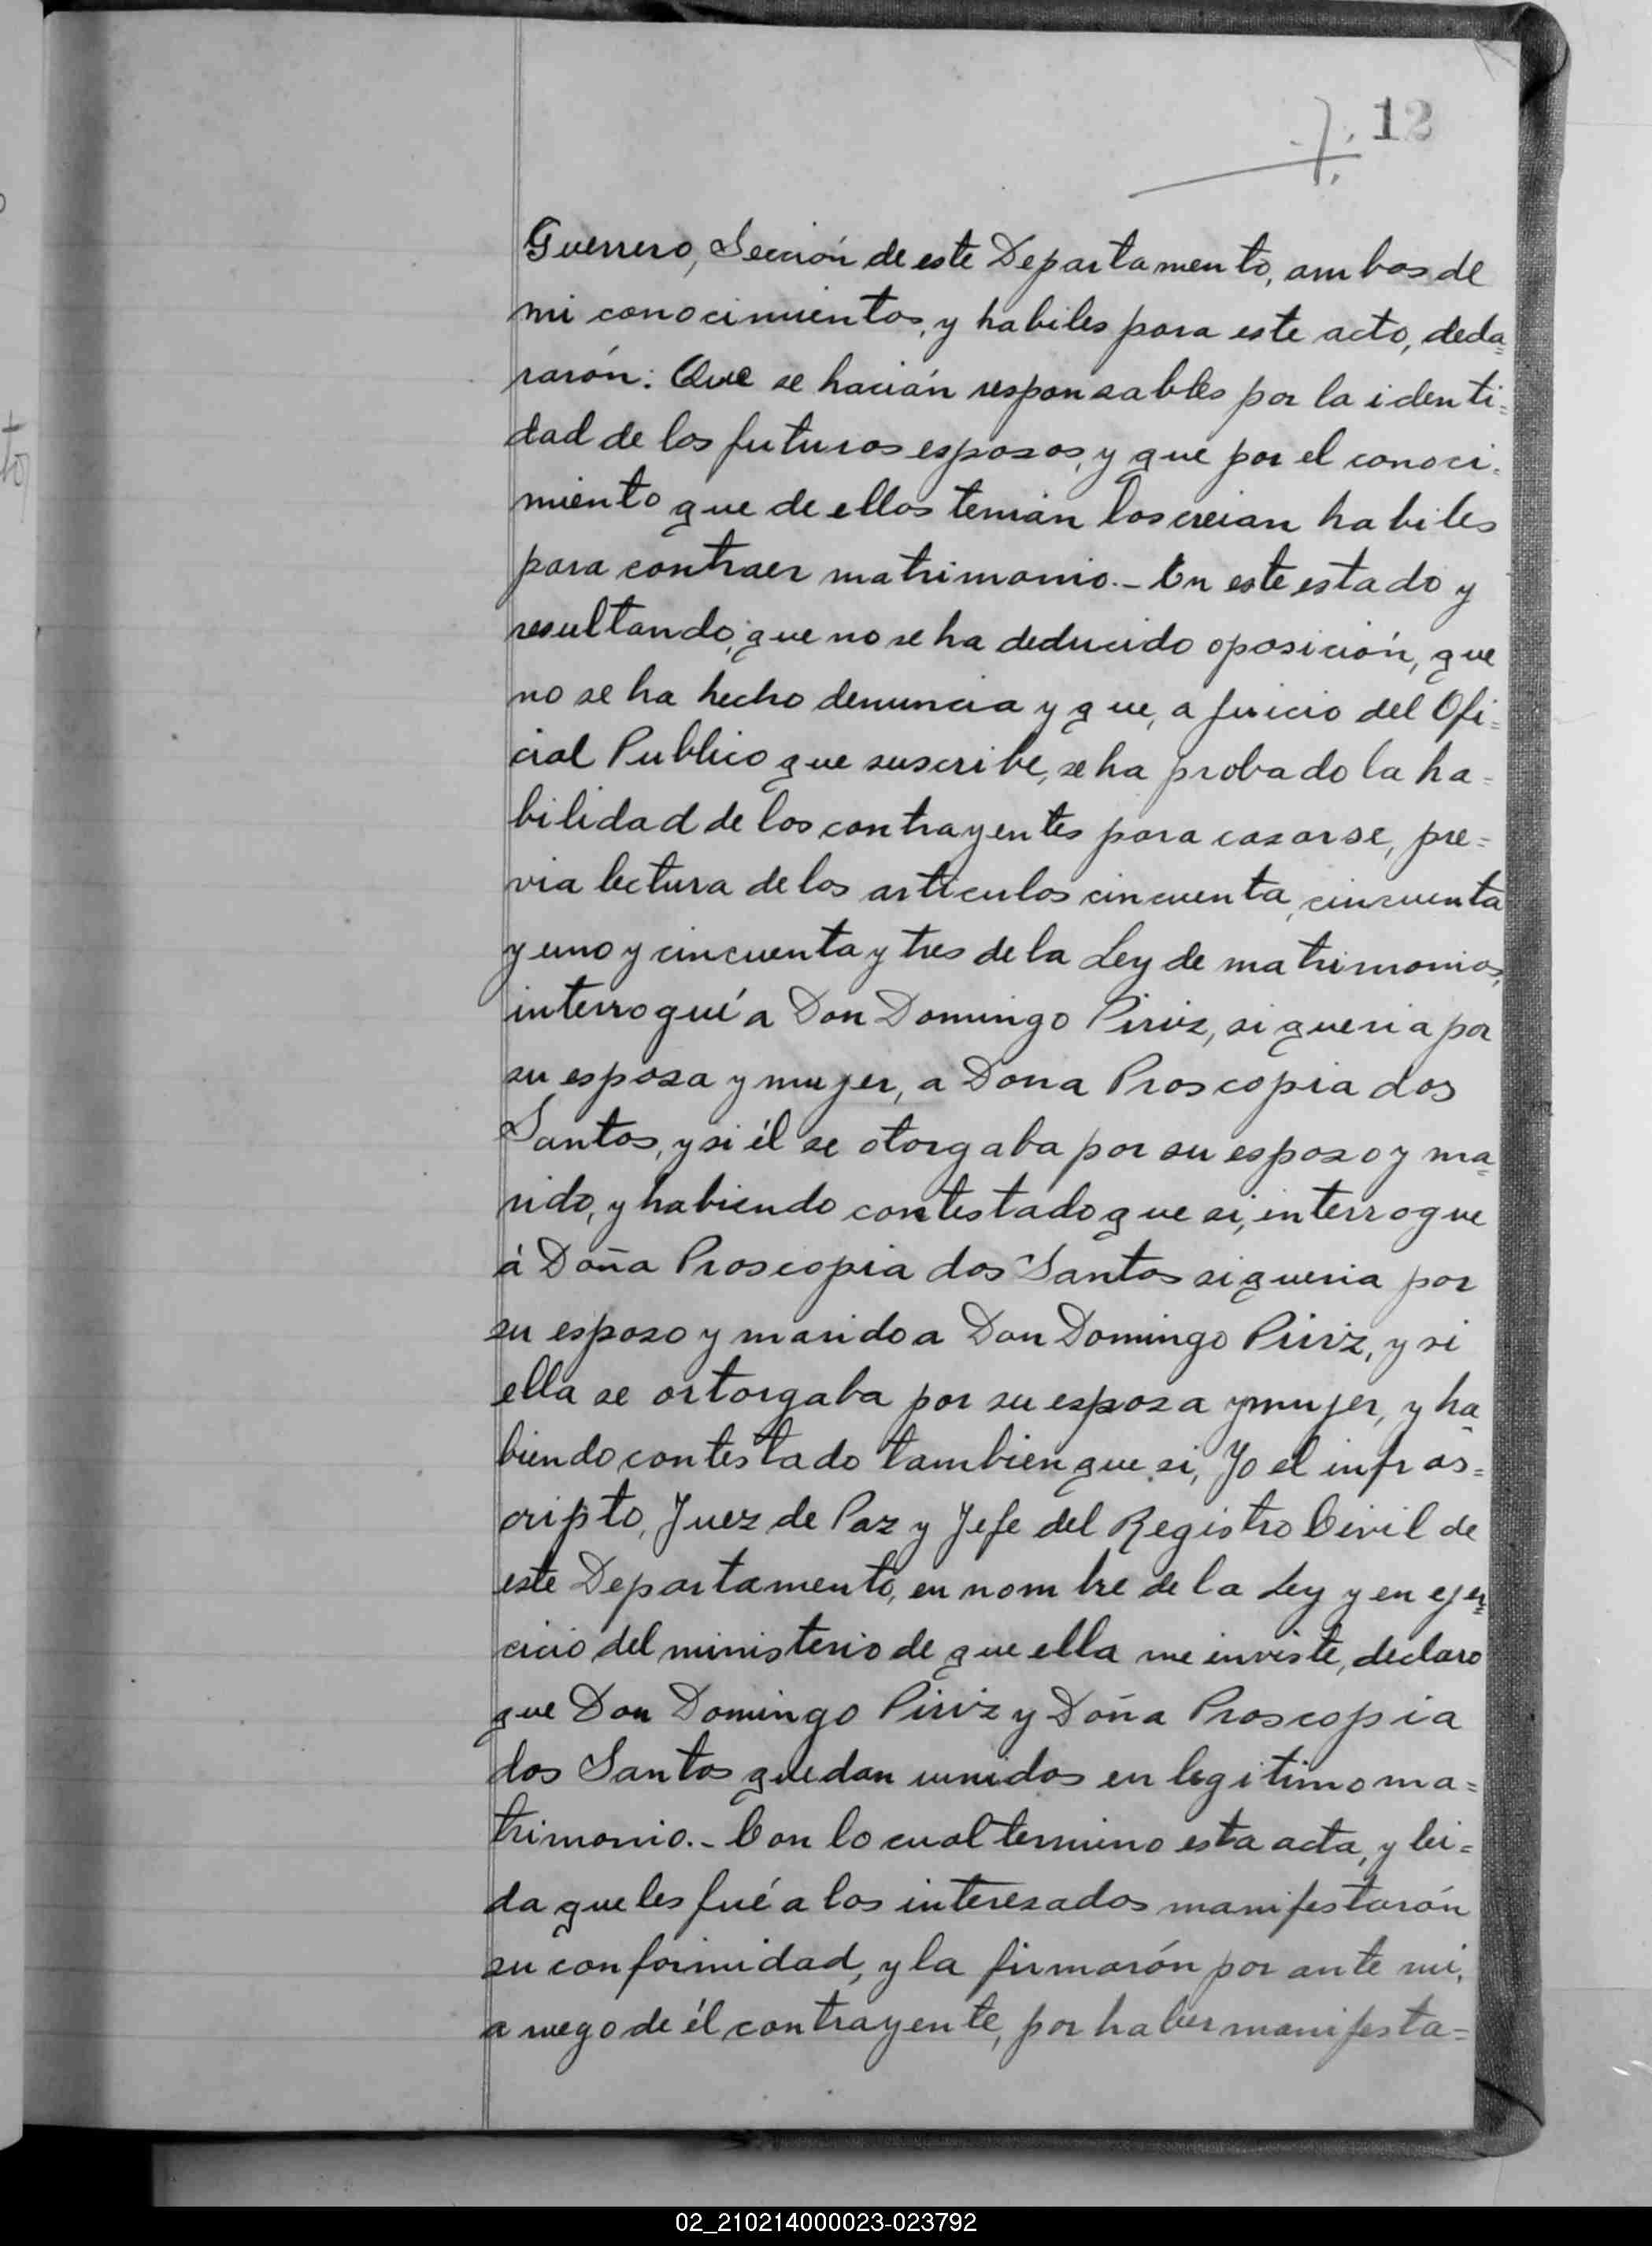 7. 12
Guerrero, Sección de este Departamento, ambos de
mi conocimientos, y habiles para este acto, decla=
rarón: Que se hacián responsables por la identi=
dad de los futuros esposos, y que por el conoci=
miento que de ellos tenián los creian habiles
para contraer matrimonio.- En este estado y
resultando; que no se ha deducido oposición, que
no se ha hecho denuncia y que, a juicio del Ofi=
cial Publico que suscribe, se ha probado la ha=
bilidad de los contrayentes para casarse, pre=
via lectura de los articulos cincuenta, cincuenta
y uno y cincuenta y tres de la Ley de matrimonios,
interrogué a Don Domingo Piriz, si queria por
su esposa y mujer, a Dona Proscopia dos
Santos, y si él se otorgaba por su esposo y ma=
rido, y habiendo contestado que si, interrogue
á Doña Proscopia dos Santos si queria por
su esposo y marido a Don Domingo Piriz, y si
ella se ortorgaba por su esposa y mujer, y ha
biendo contestado tambien que si, Yo el infras=
cripto, Juez de Paz y Jefe del Registro Civil de
este Departamento, en nombre de la Ley y en ejer=
cicio del ministerio de que ella me inviste, declaro
que Don Domingo Piriz y Doña Proscopia
dos Santos quedan unidos en legitimo ma=
trimonio.- Con lo cual termino esta acta, y lei=
da que les fué a los interesados manifestarón
su conformidad, y la firmarón por ante mi,
a ruego de él contrayente, por haber manifesta=
02_210214000023-023792